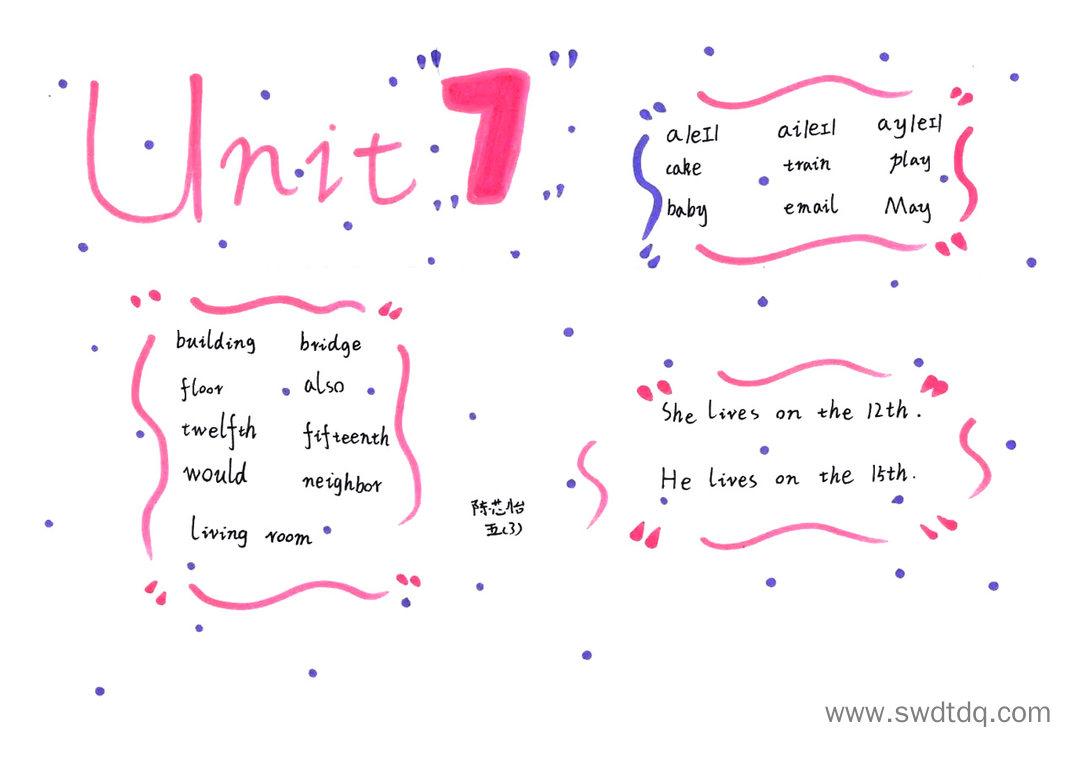 Unit "7"
a/eɪ/ ai/eɪ/ ay/eɪ/
cake train play
baby email May
building bridge
floor also
twelfth fifteenth
would neighbor
living room
She lives on the 12th.
He lives on the 15th.
陈芯怡
五(3)
www.swdtdq.com